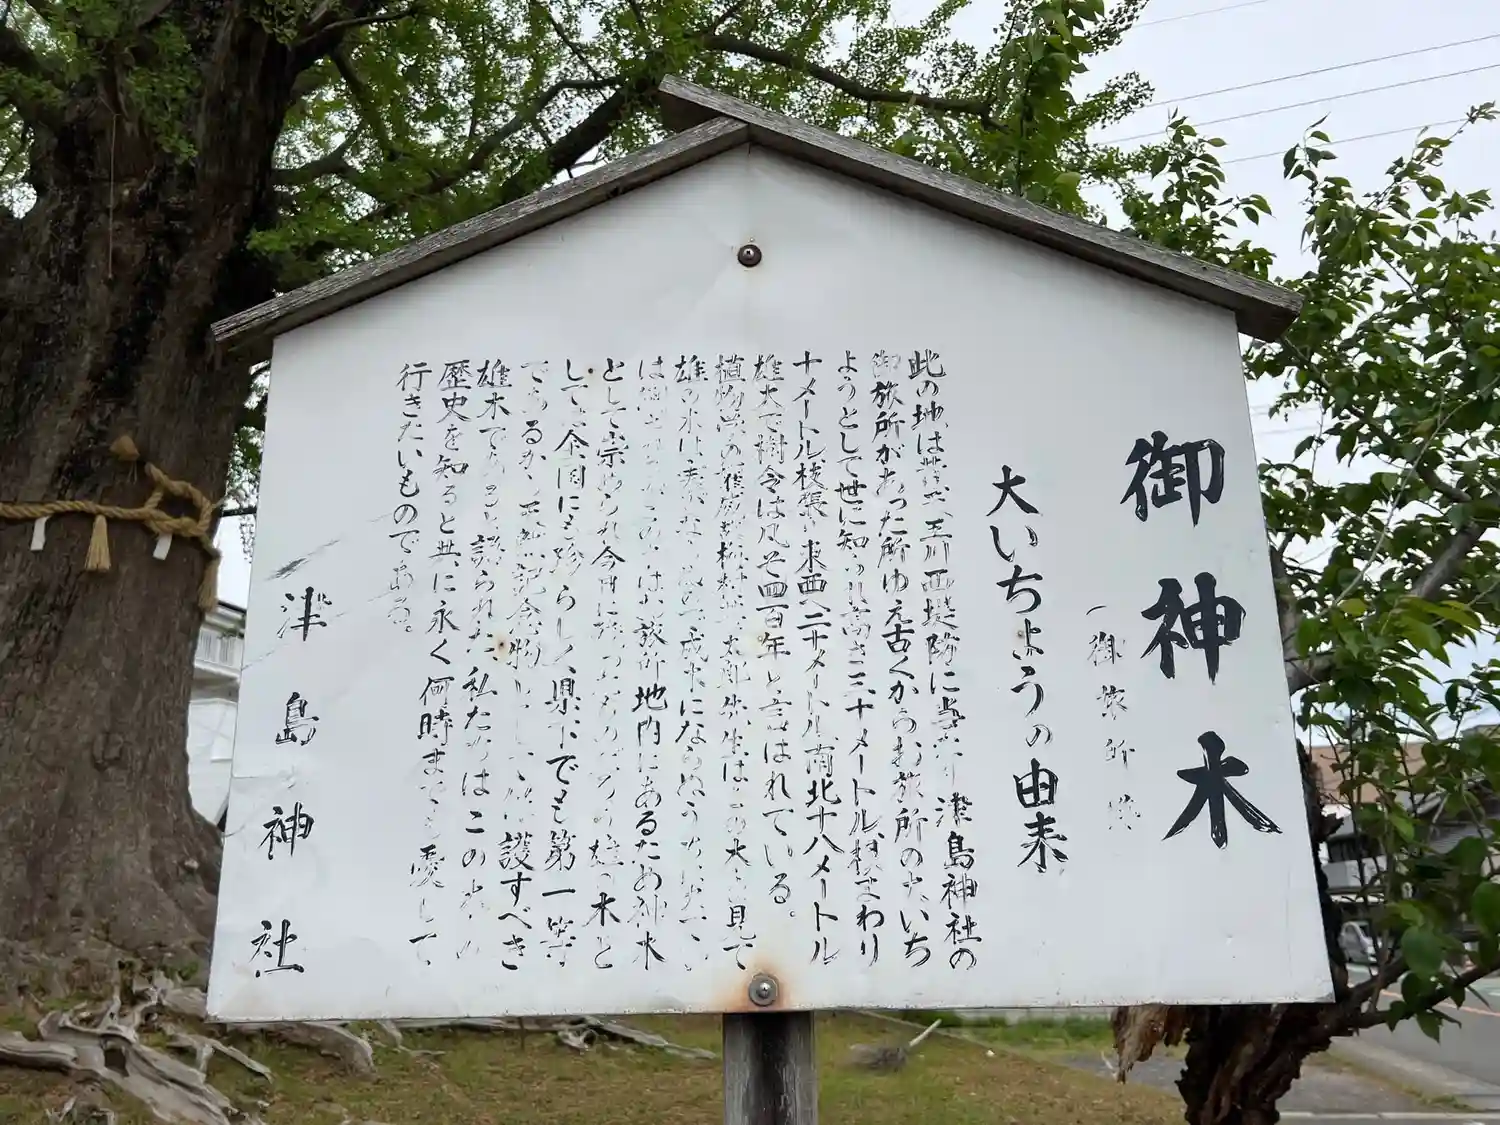 御神木
(御旅所跡
大いちょうの由来
此の地は昔天王川西堤防に当り津島神社の
御旅所があった所ゆえ古くからお旅所の大いち
ようとして世に知られ高さ三十メートル、枝まわり
十メートル、枝張り東西へ二十メートル、南北十八メートル
雄大で樹令は凡そ四百年と言はれている。
植物学の 太郎先生はこの大 見て
雄の木は 成木にならぬうちに
は御 この はお旅所地内にあるため神木
として崇められ今日に 雄の木と
しては全国にも珍らしく県下でも第一等
であるから天然記念物として保護すべき
雄木であると語られた私たちはこの
歴史を知ると共に永く何時までも愛して
行きたいものである。
津島神社